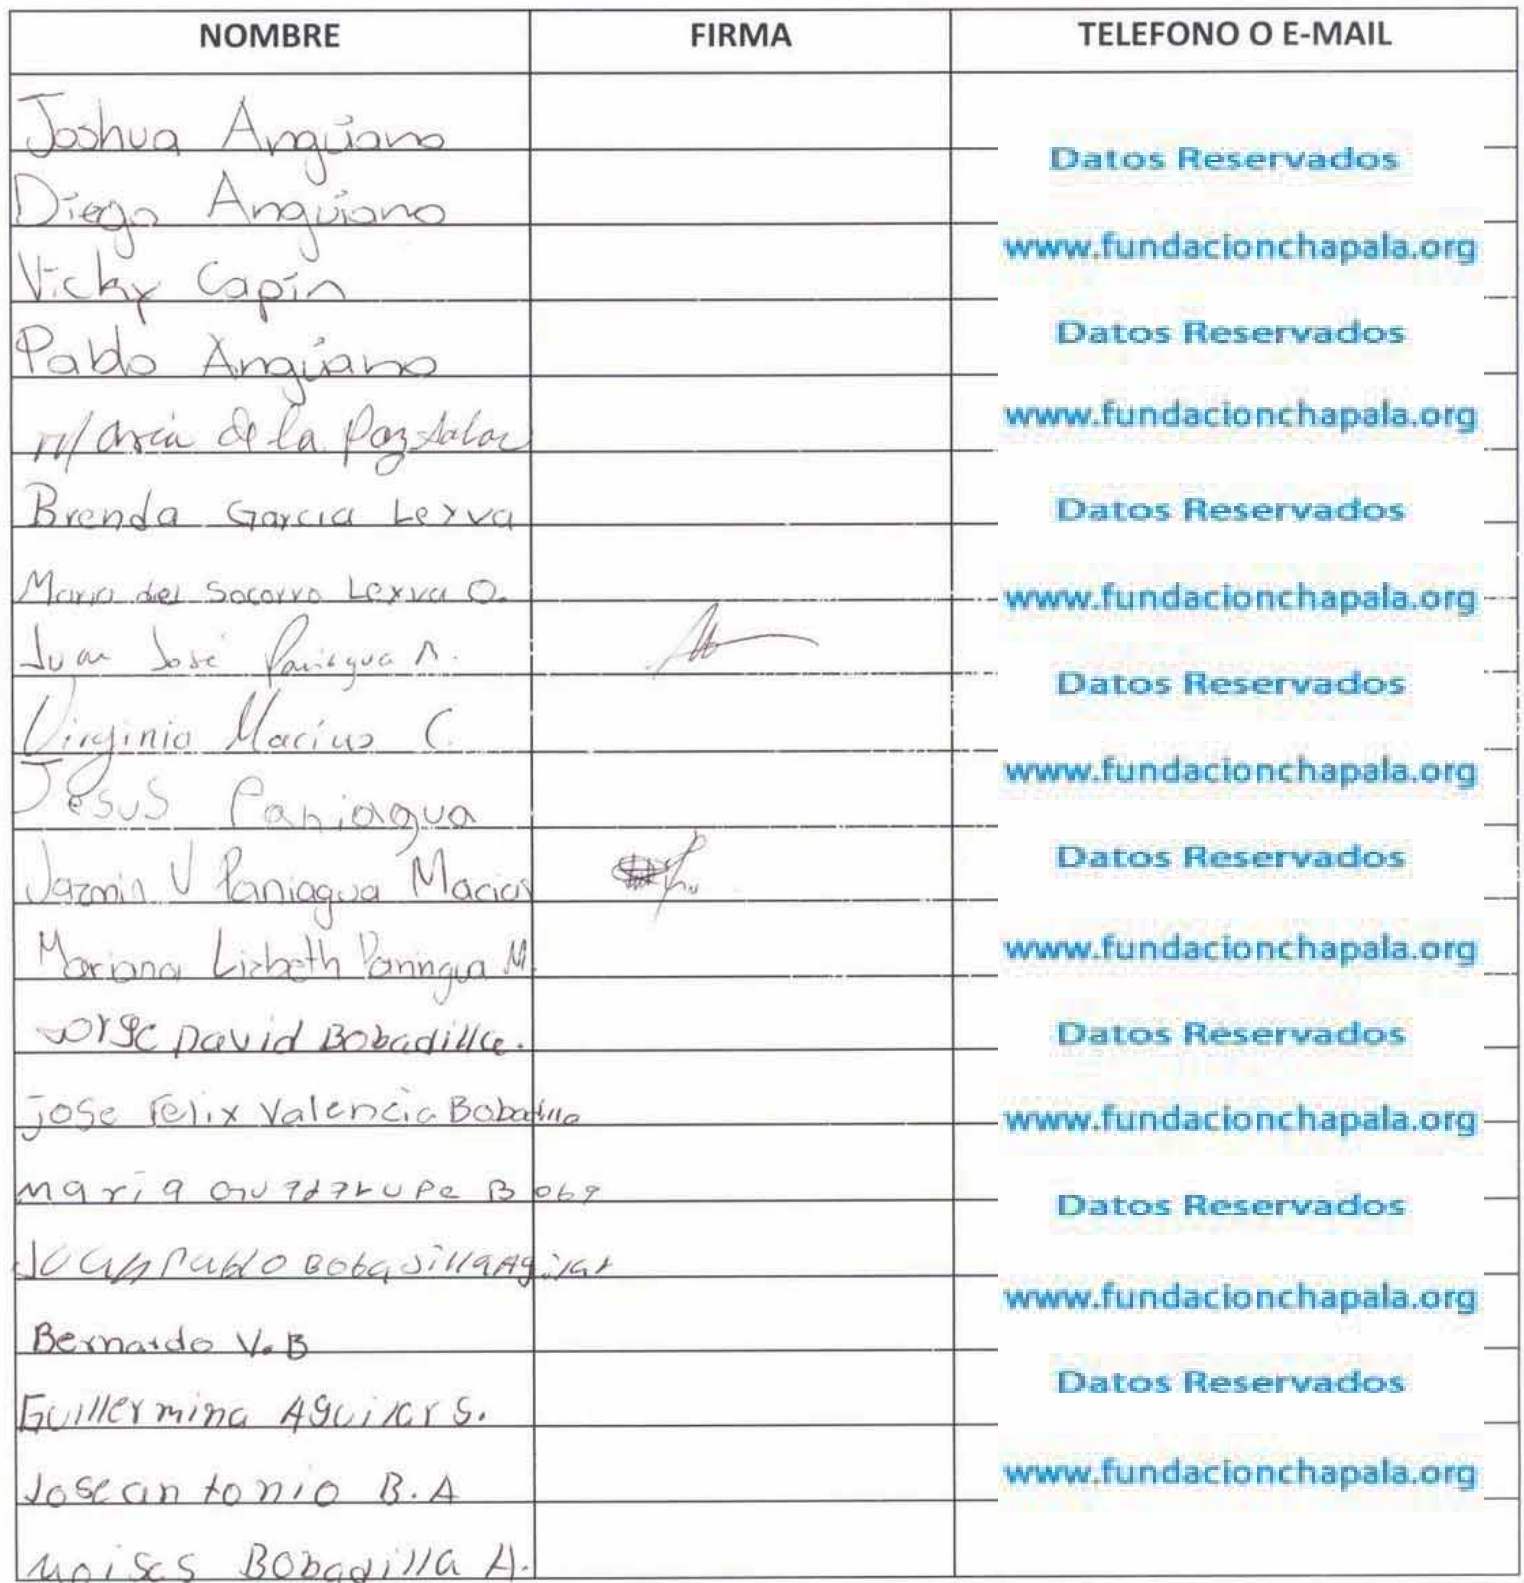 NOMBRE FIRMA TELEFONO O E-MAIL
Joshua Angüiano
Datos Reservados
Diego Angüiano
www.fundacionchapala.org
Vicky Capín
Pablo Angüiano
Datos Reservados
María de la Paz
www.fundacionchapala.org
Brenda Garcia Leyva
Datos Reservados
Maria del Socorro Leyva O.
www.fundacionchapala.org
Juan José Paniagua
Datos Reservados
Virginia Macías C.
Jesus Paniagua
www.fundacionchapala.org
Jazmin V Paniagua Macias
Datos Reservados
Mariana Lizbeth Paniagua M.
www.fundacionchapala.org
Jorge David Bobadilla.
Datos Reservados
Jose Felix Valencia Bobadilla
www.fundacionchapala.org
maria Guadalupe Boba
Datos Reservados
Juan Pablo Bobadilla Aguilar
www.fundacionchapala.org
Bernardo V. B
Datos Reservados
Guillermina Aguilar S.
www.fundacionchapala.org
Jose antonio B. A
Moises Bobadilla A.